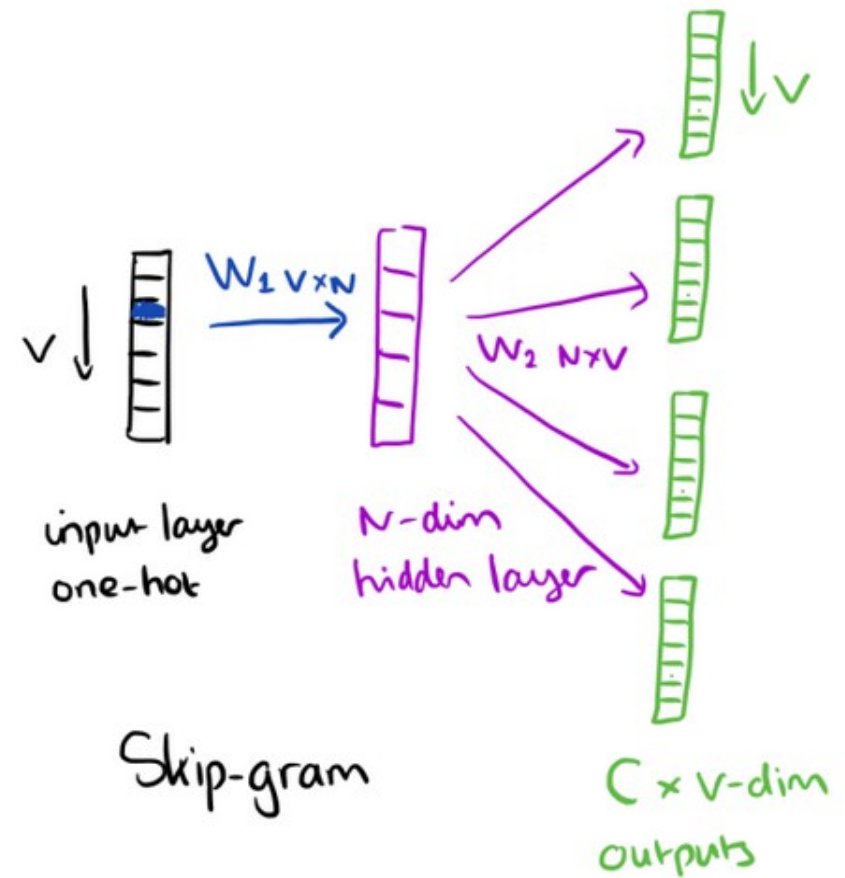 V
V
W1 V×N
W2 N×V
input layer
one-hot
N-dim
hidden layer
Skip-gram
C × V-dim
outputs